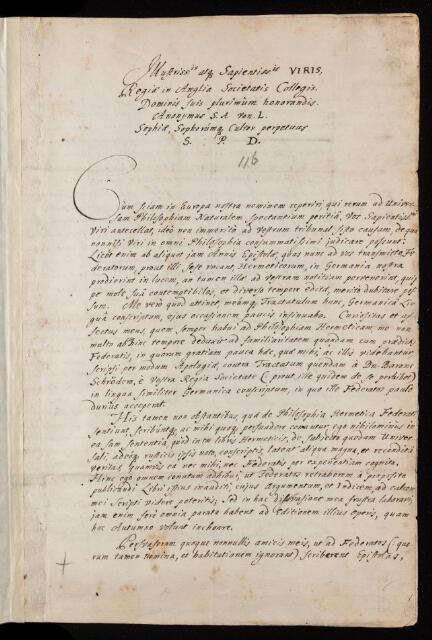 Illustriss.is atq; Sapientiss.is VIRIS,
Regiæ in Anglia Societatis Collegis.
Dominis suis plurimùm honorandis.
Anonymus S. A. von. L.
Sophiæ, Sophorumq; Cultor perpetuus
S. P. D.
116
Cum sciam in Europa nostra neminem reperiri qui rerum ad Univer-
sam Philosophiam Naturalem spectantium peritiâ, Vos Sapientiss.mi
Viri antecellat, ideò non immeritò ad Vestrum tribunal sisto causam, de qua
nonnisi Viri in omni Philosophia consummatissimi judicare possunt.
Licèt enim ab aliquot jam Annis Epistolæ, quas nunc ad vos transmitto, Fæ-
deratorum, prout illi sese vocant Hermeticorum, in Germania nostra
prodierint in lucem, an tamen illæ ad vestram notitiam pervenerint, quip-
pe mole suâ contemptibiles, et diverso tempore editæ, meritò dubitare pos-
sum. Me verò quod attinet, meumq; Tractatulum hunc, Germanicâ Lin-
guâ conscriptum, ejus occasionem paucis insinuabo. Curiositas et af-
fectus meus, quem semper habui ad Philosophiam Hermeticam me non
multo abhinc tempore deduxit ad familiaritatem quandam cum prædictis
Fæderatis, in quorum gratiam pauca hæc, quæ mihi, ac illis videbantur,
scripsi per modum Apologiæ, contra Tractatum quendam à Dn. Barone
Schrödero, è Vestra Regia Societate (prout ille quidem de se perhibet)
in lingua similiter Germanica conscriptum, in quo ille Fæderatos paulò
durius acceperat.
His tamen non obstantibus, quæ de Philosophia Hermetica Fæderati
sentiunt, scribuntq; ac mihi quoq; persuadere conantur, ego nihilominus in
ea sum sententia, quòd in libris Hermeticis, de subjecto quodam Univer-
sali, adeoq; rusticis ipsis noto, conscriptis, lateat aliqua magna, et recondita
veritas, quamvis ea nec mihi, nec Fæderatis per experientiam cognita.
Hinc ego omnem conatum adhibui, ut Fæderatos retraherem à proposito
publicandi Libri istius inauditi, cujus Argumentum, et Indicem, ad calcem
mei Scripti videre poteritis; Sed in hac dissuasione mea frustra laboravi,
jam enim ferè omnia parata habent ad Editionem illius operis, quam
hoc Autumno volunt inchoare.
Persuaseram quoque nonnullis amicis meis, ut ad Fæderatos (: quo-
rum tamen nomina, et habitationem ignorant) scriberent Epistolas,